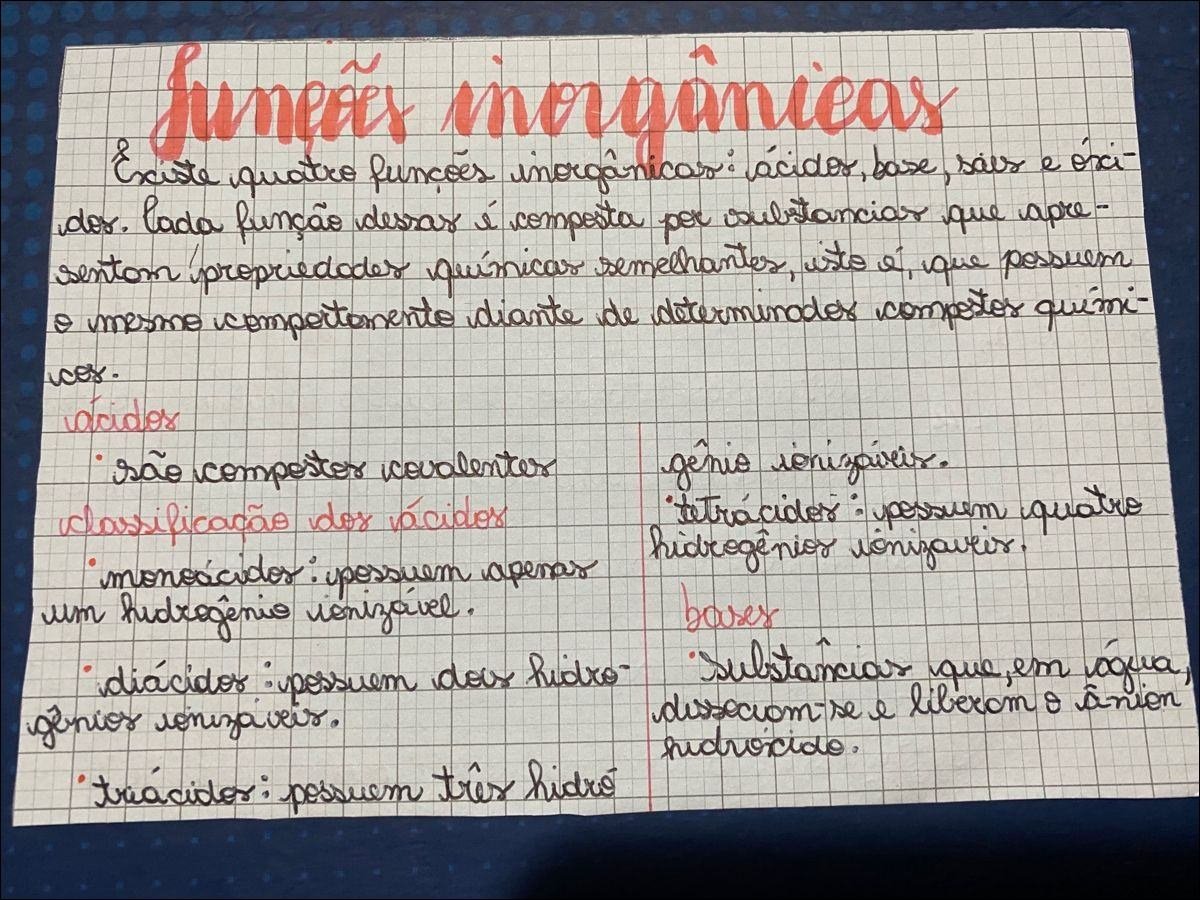 funções inorgânicas
Existe quatro funções inorgânicas: ácidos, base, sais e óxi-
dos. Cada função dessas é composta por substancias que apre-
sentam propriedades químicas semelhantes, isto é, que possuem
o mesmo comportamento diante de determinados compostos quími-
cos.
ácidos
• são compostos covalentes
classificação dos ácidos
• monoácidos: possuem apenas
um hidrogênio ionizável.
• diácidos: possuem dois hidro-
gênios ionizáveis.
• triácidos: possuem três hidro
gênio ionizáveis.
• tetrácidos: possuem quatro
hidrogênios ionizaveis.
bases
• substâncias que, em água,
dissociam-se e liberam o ânion
hidróxido.